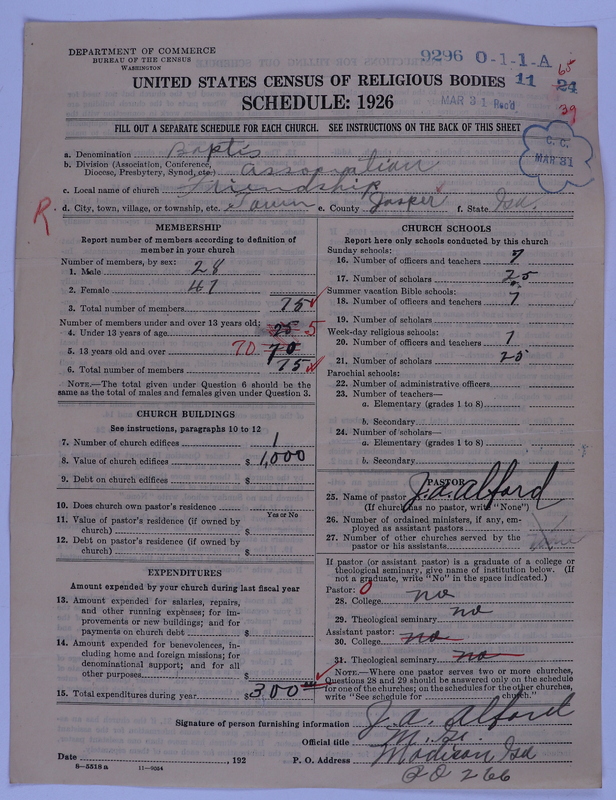 DEPARTMENT OF COMMERCE
BUREAU OF THE CENSUS
WASHINGTON
9296 0-1-1-A
65
UNITED STATES CENSUS OF RELIGIOUS BODIES 11 24
SCHEDULE: 1926
MAR 31 Rec'd
39
FILL OUT A SEPARATE SCHEDULE FOR EACH CHURCH. SEE INSTRUCTIONS ON THE BACK OF THIS SHEET
C. C.
MAR 31
a. Denomination Baptis
b. Division (Association, Conference, Diocese, Presbytery, Synod, etc.) association
c. Local name of church Friendship
R
d. City, town, village, or township, etc. e. County Jasper f. State
MEMBERSHIP
Report number of members according to definition of member in your church
Number of members, by sex:
1. Male 28
2. Female 47
3. Total number of members 75
Number of members under and over 13 years old:
4. Under 13 years of age 25 5
5. 13 years old and over 70 70
6. Total number of members 75
NOTE.—The total given under Question 6 should be same as the total of males and females given under Question 3.
CHURCH BUILDINGS
See instructions, paragraphs 10 to 12
7. Number of church edifices 1
8. Value of church edifices $ 1,000
9. Debt on church edifices $
10. Does church own pastor's residence
Yes or No
11. Value of pastor's residence (if owned by church) $
12. Debt on pastor's residence (if owned by church) $
EXPENDITURES
Amount expended by your church during last fiscal year
13. Amount expended for salaries, repairs, and other running expenses; for improvements or new buildings; and for payments on church debt $
14. Amount expended for benevolences, including home and foreign missions; for denominational support; and for all other purposes $
15. Total expenditures during year $ 300
CHURCH SCHOOLS
Report here only schools conducted by this church
Sunday schools:
16. Number of officers and teachers 7
17. Number of scholars 25
Summer vacation Bible schools:
18. Number of officers and teachers 7
19. Number of scholars
Week-day religious schools:
20. Number of officers and teachers 7
21. Number of scholars 25
Parochial schools:
22. Number of administrative officers
23. Number of teachers—
a. Elementary (grades 1 to 8)
b. Secondary
24. Number of scholars—
a. Elementary (grades 1 to 8)
b. Secondary
PASTOR
25. Name of pastor J. A. Alford
(If church has no pastor, write "None")
26. Number of ordained ministers, if any, employed as assistant pastors
27. Number of other churches served by the pastor or his assistants none
If pastor (or assistant pastor) is a graduate of a college or theological seminary, give name of institution below. (If not a graduate, write "No" in the space indicated.)
Pastor: 0
28. College no
29. Theological seminary no
Assistant pastor:
30. College no
31. Theological seminary no
NOTE.—Where one pastor serves two or more churches, Questions 28 and 29 should be answered only on the schedule for one of the churches; on the schedules for the other churches, write "See schedule for church."
Signature of person furnishing information J. A. Alford
Official title
Date , 192 P. O. Address Madison
8-5518 a 11-9054
266